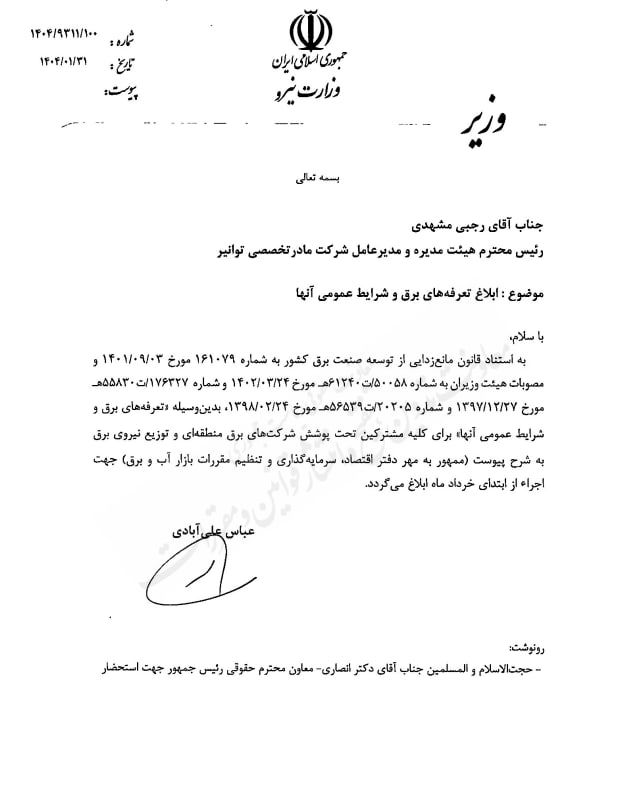 شماره : ۱۴۰۴/۹۳۱۱/۱۰۰
تاریخ : ۱۴۰۴/۰۱/۳۱
پیوست:
جمهوری اسلامی ایران
وزارت نیرو
وزیر
بسمه تعالی
جناب آقای رجبی مشهدی
رئیس محترم هیئت مدیره و مدیرعامل شرکت مادرتخصصی توانیر
موضوع : ابلاغ تعرفه‌های برق و شرایط عمومی آنها
با سلام،
به استناد قانون مانع‌زدایی از توسعه صنعت برق کشور به شماره ۱۶۱۰۷۹ مورخ ۱۴۰۱/۰۹/۰۳ و
مصوبات هیئت وزیران به شماره ۵۰۰۵۸/ت۶۱۲۴۰هـ مورخ ۱۴۰۲/۰۳/۲۴ و شماره ۱۷۶۳۲۷/ت۵۵۸۳۰هـ
مورخ ۱۳۹۷/۱۲/۲۷ و شماره ۲۰۲۰۵/ت۵۶۵۳۹هـ مورخ ۱۳۹۸/۰۲/۲۴، بدین‌وسیله «تعرفه‌های برق و
شرایط عمومی آنها» برای کلیه مشترکین تحت پوشش شرکت‌های برق منطقه‌ای و توزیع نیروی برق
به شرح پیوست (ممهور به مهر دفتر اقتصاد، سرمایه‌گذاری و تنظیم مقررات بازار آب و برق) جهت
اجراء از ابتدای خرداد ماه ابلاغ می‌گردد.
عباس علی‌آبادی
رونوشت:
- حجت‌الاسلام و المسلمین جناب آقای دکتر انصاری- معاون محترم حقوقی رئیس جمهور جهت استحضار